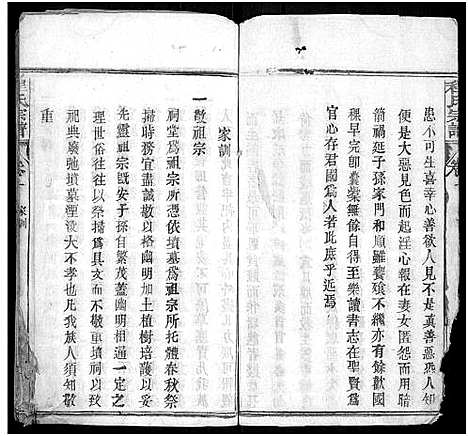 程氏宗譜
患不可生喜幸心善欲人見不是真善惡恐人知
便乃大惡見色而起淫心報在妻女匿怨而用暗
箭禍延子孫家門和順雖饔飧不繼亦有餘歡國
稞早完即囊槖無餘自得至樂讀書志在聖賢為
官心存君國為人若此庶乎近焉
家訓
一敬祖宗
祠堂為祖宗所憑依墳墓為祖宗所托體春秋祭
祀務宜盡誠敬以格幽明加土植樹培護以妥
先靈祖宗既安子孫自繁茂蓋幽明相通一定之
理世俗往往以祭掃為具文而不敬重墳祠以致
祀典廢弛墳墓湮没大不孝也凡我族人須知敬
重
氏宗譜
卷一
家訓